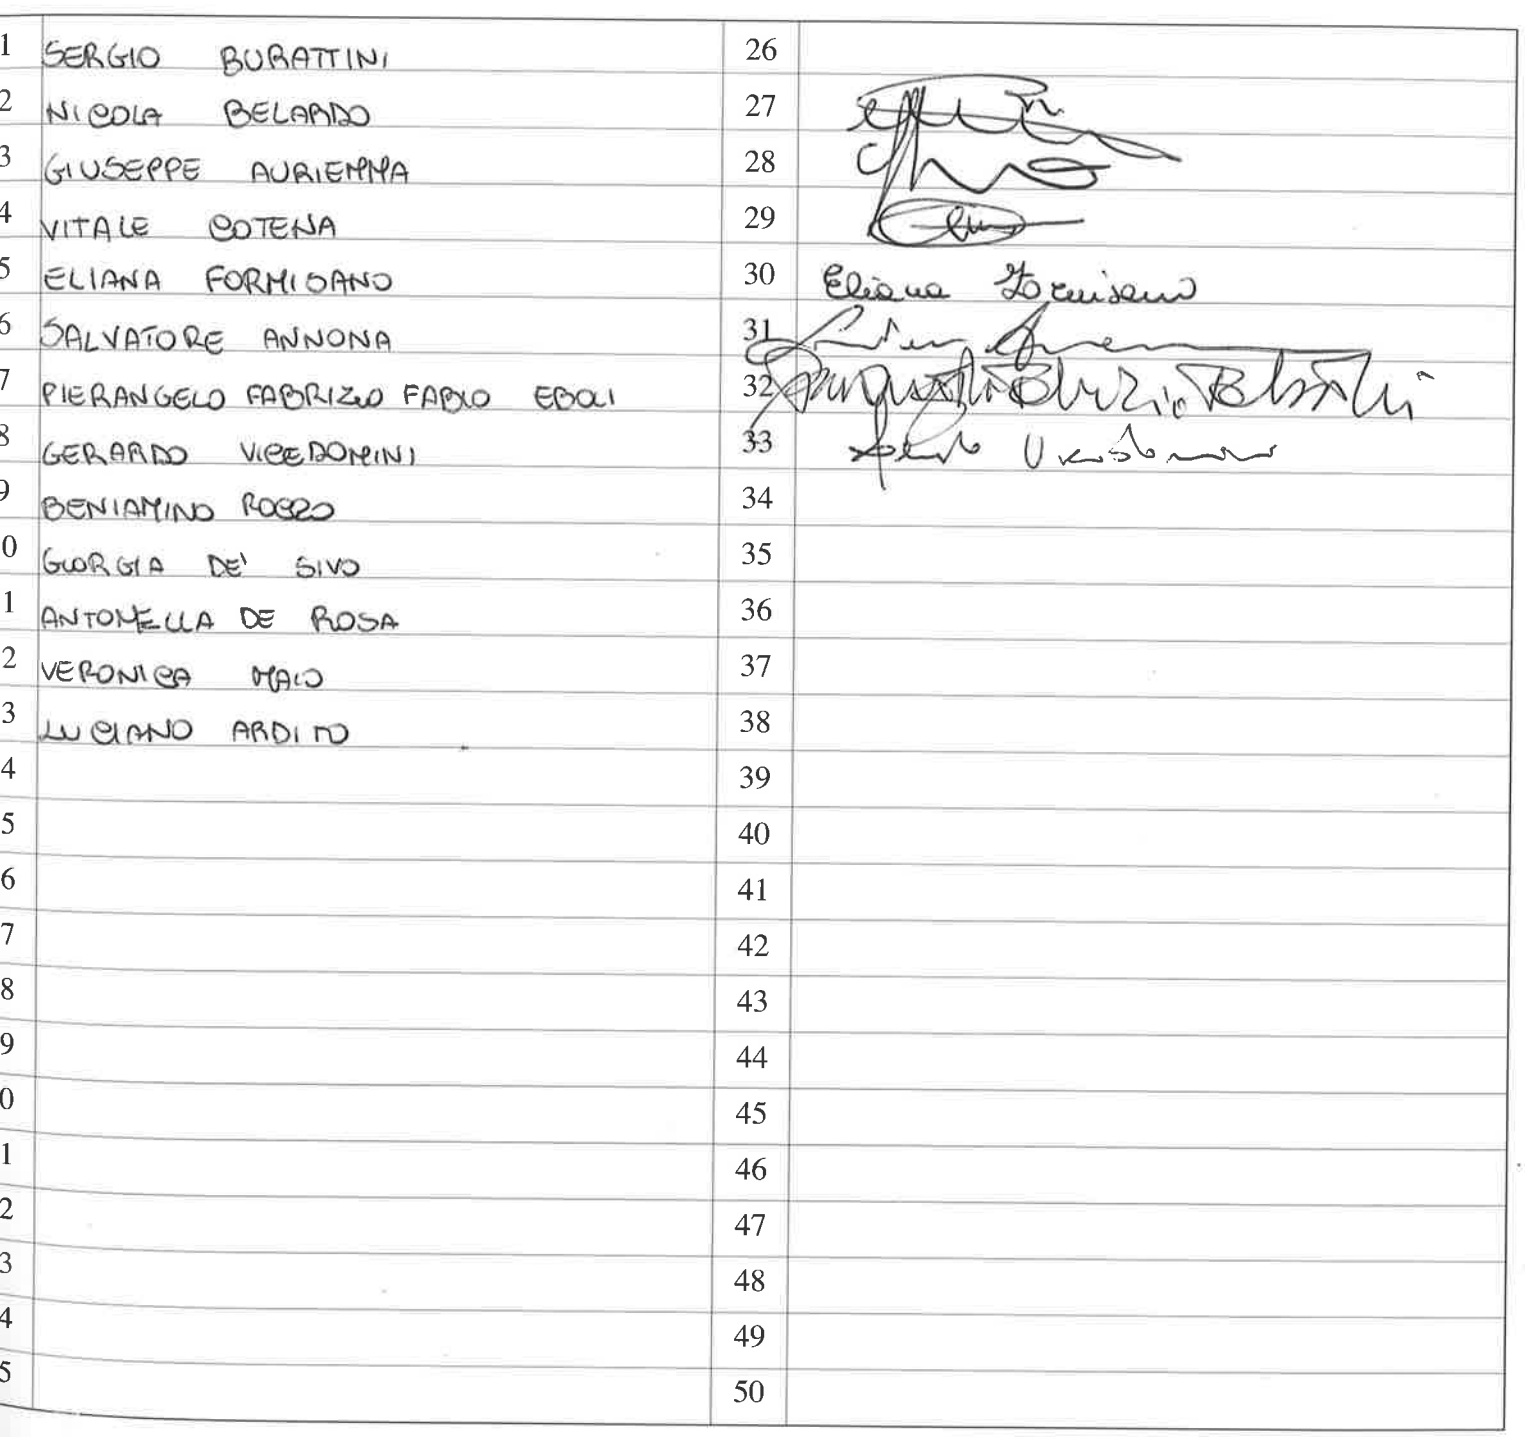 1 SERGIO BURATTINI 26
2 NICOLA BELARDO 27
3 GIUSEPPE AURIEMMA 28
4 VITALE COTENA 29
5 ELIANA FORMISANO 30 Eliana Formisano
6 SALVATORE ANNONA 31
7 PIERANGELO FABRIZIO FABIO EBOLI 32
8 GERARDO VICEDOMINI 33
9 BENIAMINO 34
0 GIORGIA DE' SIVO 35
1 ANTONELLA DE ROSA 36
2 VERONICA MAIO 37
3 LUCIANO ARDITO 38
4 39
5 40
6 41
7 42
8 43
9 44
0 45
1 46
2 47
3 48
4 49
5 50